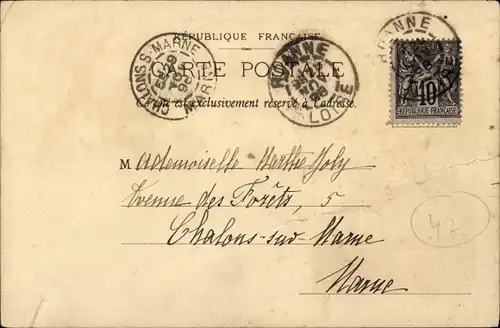 RÉPUBLIQUE FRANÇAISE
CARTE POSTALE
Ce côté est exclusivement réservé à l'adresse.
CHALONS-S-MARNE
MARNE
ROANNE
LOIRE
ROANNE
POSTES
10
REPUBLIQUE FRANÇAISE
Mademoiselle Marthe Joly
Avenue des Forêts, 5
Chalons-sur-Marne
Marne
42